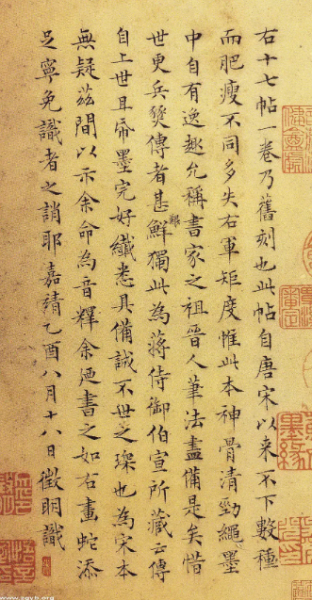 右十七帖一卷乃舊刻也此帖自唐宋以來不下數種
而肥瘦不同多失右軍矩度惟此本神骨清勁繩墨
中自有逸趣允稱書家之祖晉人筆法盡備是矣惜
世更兵燹傳者甚鮮獨此為蔣侍御伯宣所藏云傳
自上世且帋墨完好纖悉具備誠不世之琛也為宋本
無疑茲間以示余命為音釋余廼書之如右畫蛇添
足寧免識者之誚耶嘉靖乙酉八月十八日徵明識